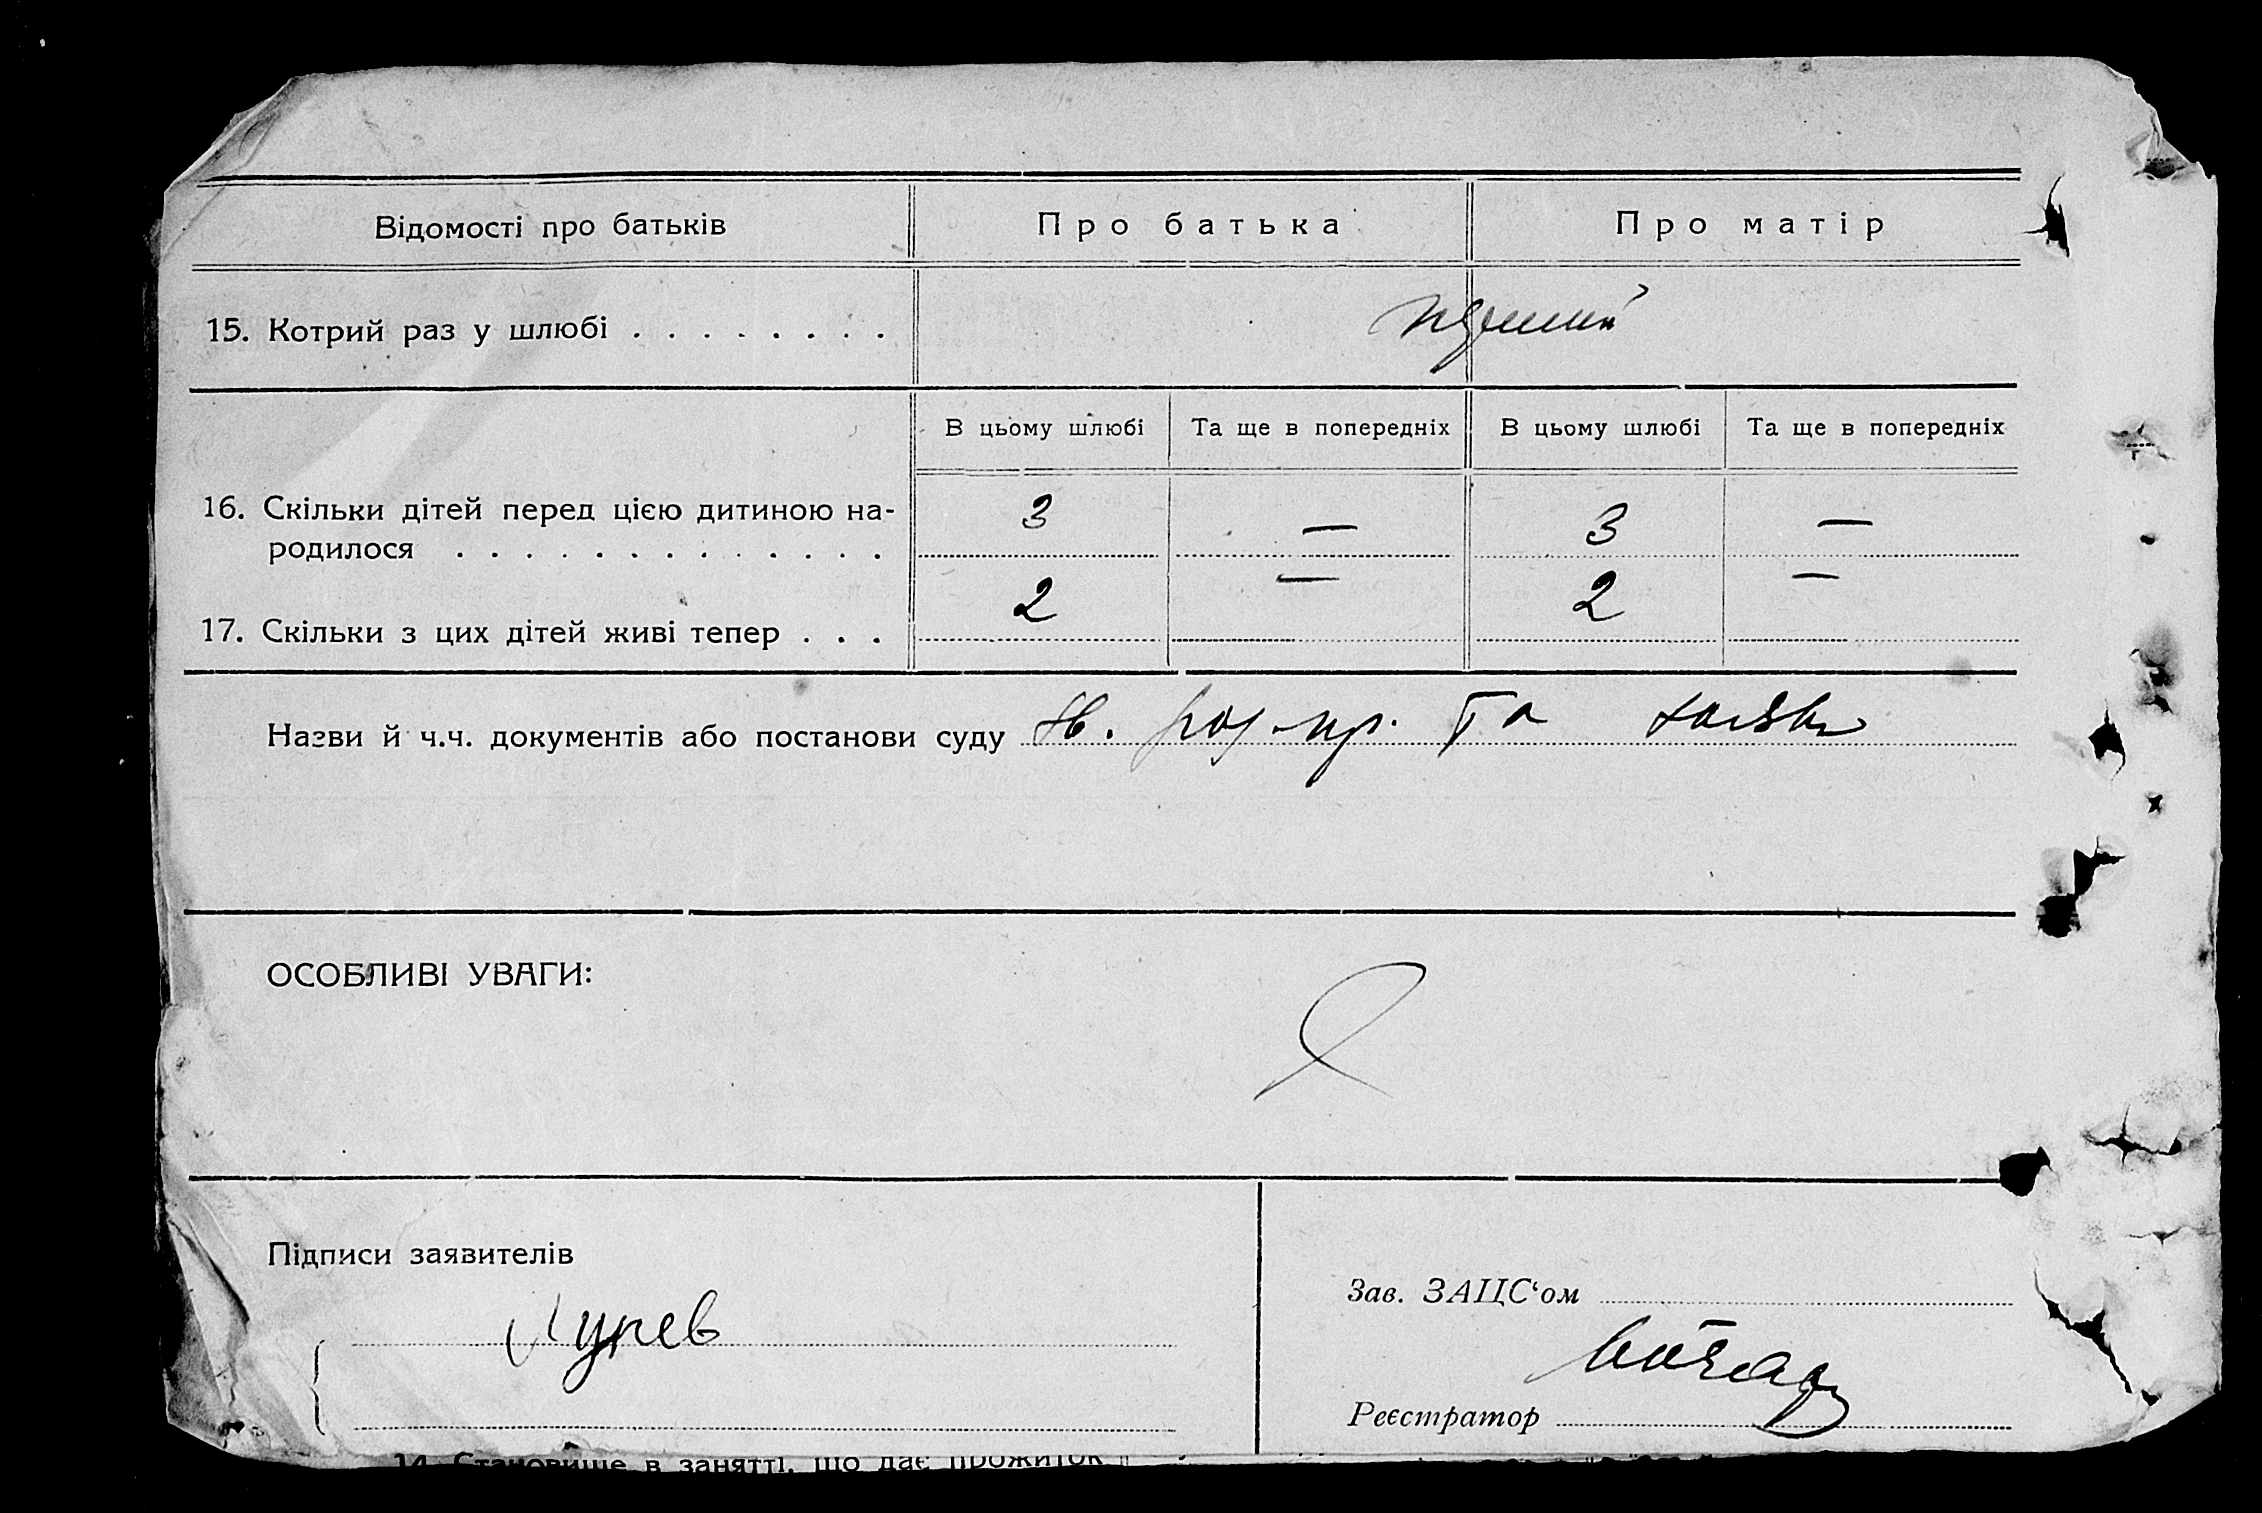 Відомості про батьків Про батька Про матір
15. Котрий раз у шлюбі . . . . . . . . перший
В цьому шлюбі Та ще в попередніх В цьому шлюбі Та ще в попередніх
16. Скільки дітей перед цією дитиною на-
родилося . . . . . . . . . . . . . 3 — 3 —
17. Скільки з цих дітей живі тепер . . . 2 — 2 —
Назви й ч.ч. документів або постанови суду та
ОСОБЛИВІ УВАГИ:
Підписи заявителів
Зав. ЗАЦС‘ом
Реєстратор
14. Становище в занятті, що дає прожиток